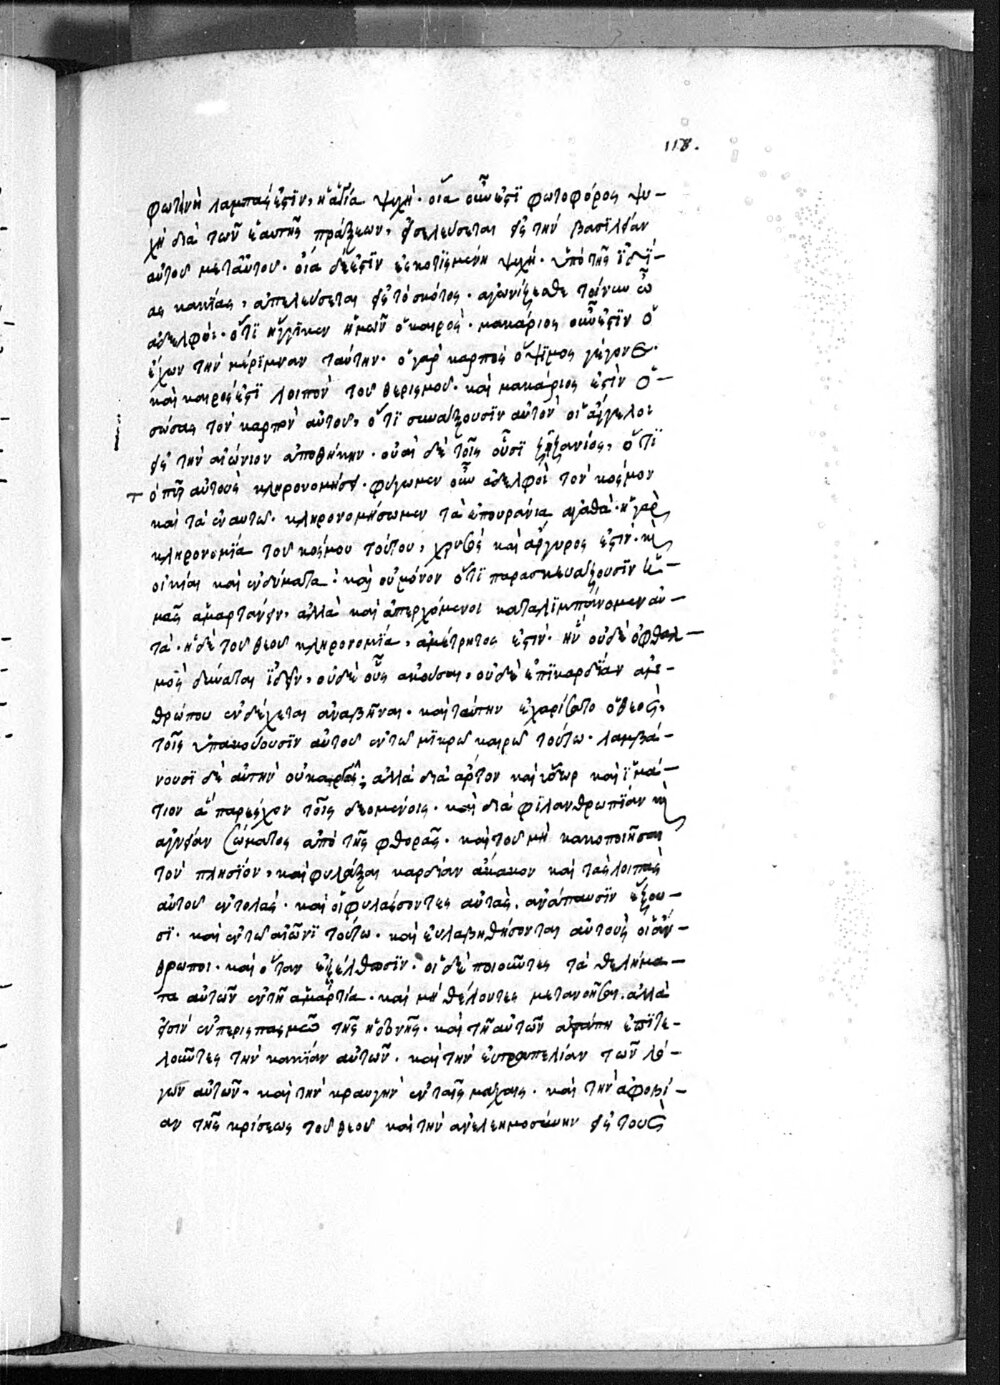 118.
φωτϊνὴ λαμπάς ἐστϊν, ἡ ἁγία ψυχή· οἵα οὖν ἐστϊ φωτοφόρος ψυ–
χὴ διὰ τῶν ἑαυτῆς πράξεων, ἐξελεύσεται εἰς τὴν βασϊλείαν
αὐτοῦ μεταὐτοῦ· οἵα δέ ἐστϊν ἐσκοτϊσμένη ψυχὴ· ὑπὸ τῆς ἰδί–
ας κακίας, ἀπελεύσεται εἰς τὸ σκότος· ἀγωνίζεσθε τοίνυν ὦ
ἀδελφοί· ὅτϊ ἤγγϊκεν ἡμῶν ὁ καιρός· μακάριος οὖν ἐστϊν ὁ
ἔχων τὴν μέρϊμναν ταύτην· ὁ γὰρ καρπὸς ὄψϊμος γέγονε·
καὶ καιρός ἐστϊ λοιπὸν τοῦ θερισμοῦ· καὶ μακάριος ἐστὶν ὁ–
σώσας τὸν καρπὸν αὐτοῦ, ὅτϊ συνάξουσϊν αὐτὸν οἱ ἄγγελοι
εἰς τὴν αἰώνιον ἀποθήκην· οὐαὶ δὲ τοῖς οὖσϊ ζϊζανίοις, ὅτϊ
ὁ πῦρ αὐτοὺς κληρονομήσει· φύγωμεν οὖν ἀδελφοὶ τὸν κόσμον
καὶ τὰ ἐν αυτω· κληρονομήσωμεν τὰ ἐπουράνια ἀγαθά· ἡ γὰρ
κληρονομϊα τοῦ κόσμου τούτου, χρυσός καὶ ἄργυρος ἐστίν· κὶ
οἰκίαι καὶ ἐνδύματα· καὶ οὐ μόνον ὅτϊ παρασκευάζουσϊν ἡ–
μᾶς ἁμαρτάνειν, ἀλλὰ καὶ ἀπερχόμενοι καταλϊμπάνομεν αὐ–
τά· ἡ δὲ τοῦ θεοῦ κληρονομϊα, ἀμέτρητος ἐστίν· ἣν οὐδὲ ὀφθαλ–
μὸς δύναται ϊδεῖν, οὐδὲ οὖς ἀκοῦσαι, οὐδὲ ἐπϊκαρδϊαν ἀν–
θρώπου ἐνδέχεται ἀναβῆναι· καὶ ταύτην ἐχαρίσατο ὁ θεὸς,
τοῖς ὑπακούουσϊν αὐτοῦ ἐν τῶ μϊκρῶ καιρῶ τούτω· λαμβά–
νουσϊ δὲ αὐτὴν οὐκ αὐτοῖς, ἀλλὰ διὰ ἄρτον καὶ ὕδωρ καὶ ϊμά–
τιον ἃ παρέσχον τοῖς δεομένοις· καὶ διὰ φϊλανθρωπϊαν κὶ
ἁγνείαν σώματος ἀπὸ τῆς φθορᾶς· καὶ τοῦ μὴ κακοποιῆσαι
τὸν πλησϊον, καὶ φυλάξαι καρδίαν ἄκακον καὶ τὰς λοιπὰς
αὐτοῦ ἐντολάς· καὶ οἱ φυλάσσοντες αὐτὰς, ἀνάπαυσϊν ἕξου–
σϊ· καὶ ἐν τῶ αἰῶνϊ τούτω· καὶ εὐλαβηθήσονται αὐτοὺς οἱ ἄν–
θρωποι· καὶ ὅταν ἐξέλθωσϊν· οἱ δὲ ποιοῦντες τὰ θελήμα–
τα αὐτῶν ἐν τῆ ἁμαρτία· καὶ μὴ θέλοντες μετανοῆσαι, ἀλλὰ
εἰσίν ἐν περισπασμῶ τῆς ἡδονῆς· καὶ τῆ αὐτῶν ἀπάτη ἐπϊτε–
λοῦντες τὴν κακϊαν αὐτῶν· καὶ τὴν εὐτραπελίαν τῶν λό–
γων αὐτῶν, καὶ τὴν κραυγὴν ἐν ταῖς μάχαις· καὶ τὴν ἀφοβί–
αν τῆς κρίσεως τοῦ θεοῦ καὶ τὴν ἀνελεημοσύνην εἰς τοὺς